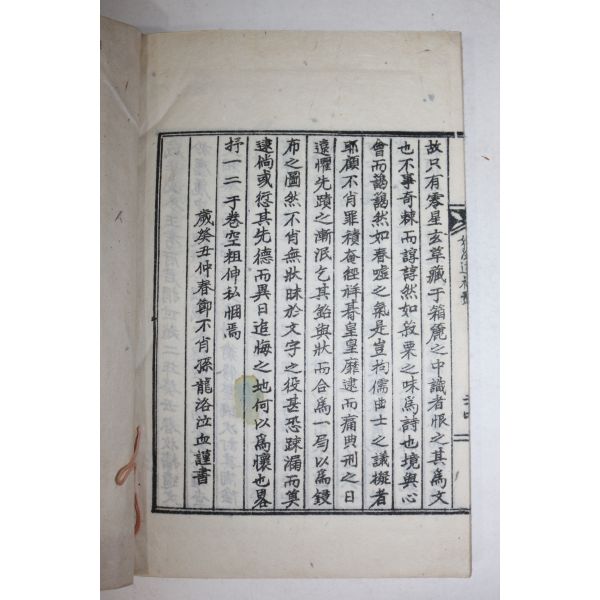 故只有零星玄草藏于箱簏之中識者恨之其爲文
也不事奇棘而諄諄然如菽栗之味爲詩也境與心
會而藹藹然如春噓之氣是豈拘儒曲士之議擬者
耶顧不肖罪積奄經祥朞皇皇靡逮而痛典刑之日
遠懼先蹟之漸泯乞其銘與狀而合爲一局以爲鋟
布之圖然不肖無狀昧於文字之役甚恐踈漏而莫
逮倘或愆其先德而異日追悔之地何以爲懷也畧
抒一二于卷空粗伸私悃焉
歲癸丑仲春節不肖孫龍洛泣血謹書